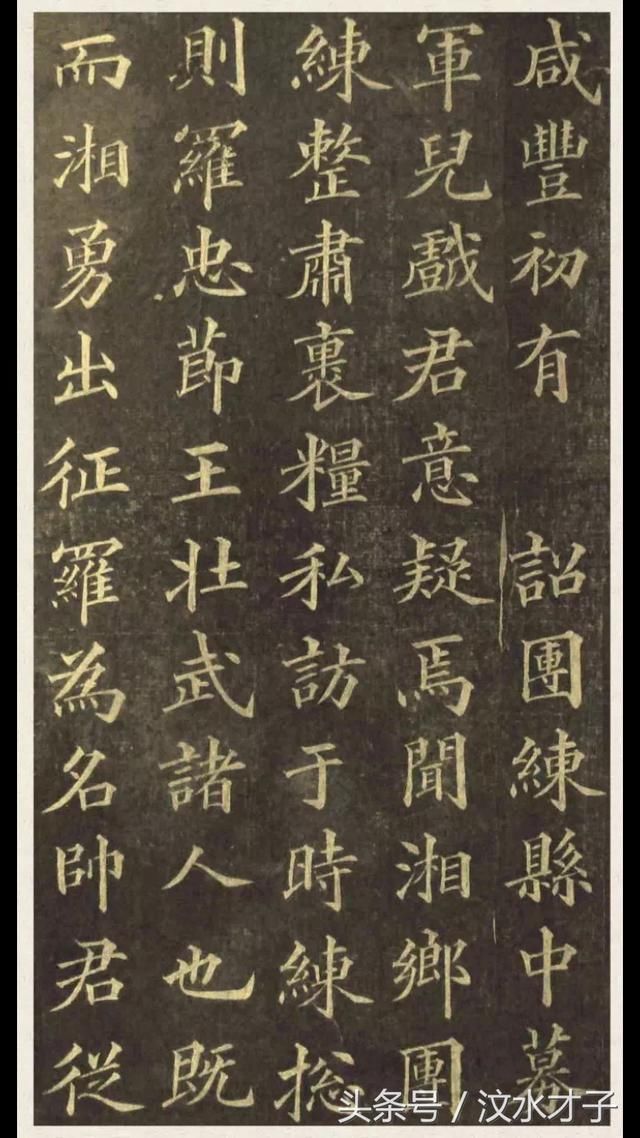 咸豐初有 詔團練縣中募
軍兒戲君意疑焉聞湘鄉團
練整肅裹糧私訪于時練揔
則羅忠節王壯武諸人也既
而湘勇出征羅為名帥君從
头条号 / 汶水才子